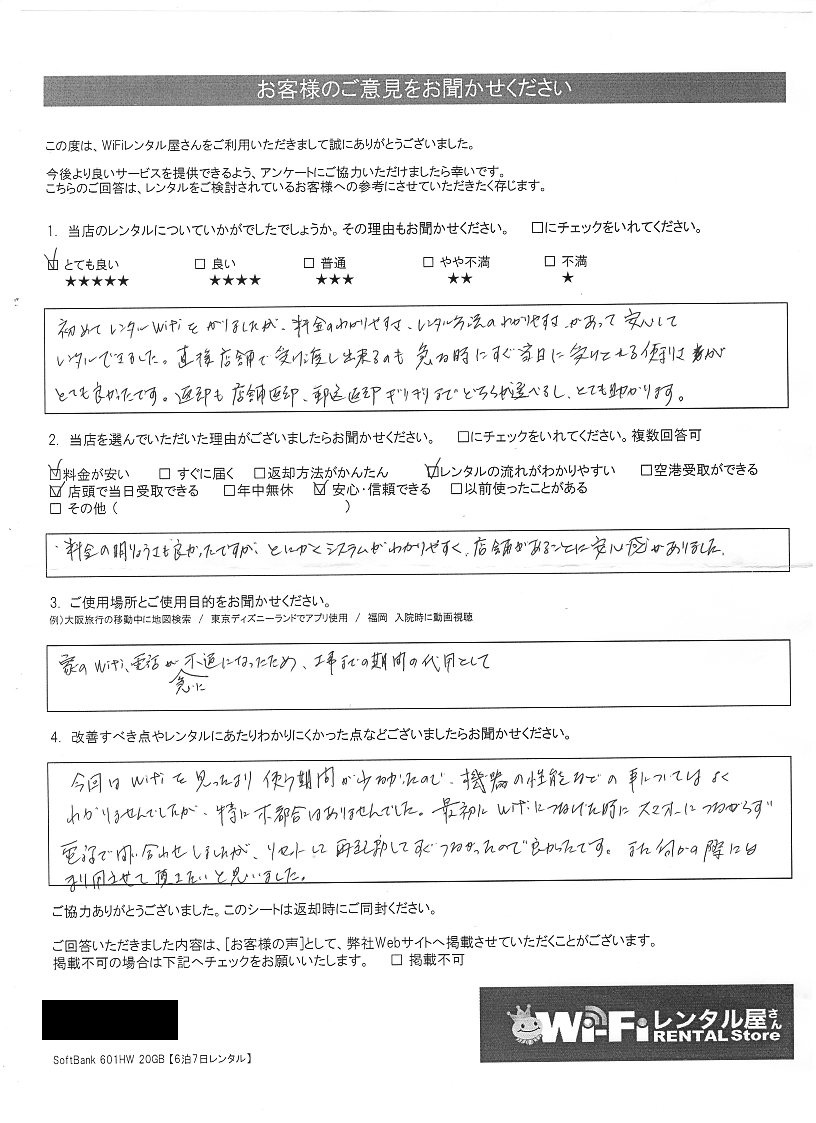 お客様のご意見をお聞かせください
この度は、WiFiレンタル屋さんをご利用いただきまして誠にありがとうございました。
今後より良いサービスを提供できるよう、アンケートにご協力いただけましたら幸いです。
こちらのご回答は、レンタルをご検討されているお客様への参考にさせていただきたく存じます。
1. 当店のレンタルについていかがでしたでしょうか。その理由もお聞かせください。 □にチェックをいれてください。
☑ とても良い □ 良い □ 普通 □ やや不満 □ 不満
★★★★★ ★★★★ ★★★ ★★ ★
初めてレンタルWifiをかりましたが、料金のわかりやすさ、レンタル方法のわかりやすさがあって安心して
レンタルできました。直接店舗で受け渡し出来るのも急な時にすぐ当日に受けとれる便利さが
とても良かったです。返却も店舗返却、郵送返却ギリギリまでどちらか選べるし、とても助かります。
2. 当店を選んでいただいた理由がございましたらお聞かせください。 □にチェックをいれてください。複数回答可
☑料金が安い □ すぐに届く □返却方法がかんたん ☑レンタルの流れがわかりやすい □空港受取ができる
☑ 店頭で当日受取できる □年中無休 ☑ 安心・信頼できる □以前使ったことがある
□ その他 ( )
・料金の明りょうさも良かったですが、とにかくシステムがわかりやすく、店舗があることに安心感がありました。
3. ご使用場所とご使用目的をお聞かせください。
例)大阪旅行の移動中に地図検索 / 東京ディズニーランドでアプリ使用 / 福岡 入院時に動画視聴
家のWifi、電話が不通になったため、工事までの期間の代用として
急に
4. 改善すべき点やレンタルにあたりわかりにくかった点などございましたらお聞かせください。
今回はWifiを使う期間が少なかったので、機器の性能などの事についてはよく
わかりませんでしたが、特に不都合はありませんでした。最初にWifiにつなげた時にスマホにつながらず
電話で問い合わせしましたが、リセットして再起動してすぐつながったので良かったです。また何かの際には
利用させて頂きたいと思いました。
ご協力ありがとうございました。このシートは返却時にご同封ください。
ご回答いただきました内容は、[お客様の声]として、弊社Webサイトへ掲載させていただくことがございます。
掲載不可の場合は下記へチェックをお願いいたします。 □ 掲載不可
Wi-Fiレンタル屋さん
RENTAL Store
SoftBank 601HW 20GB【6泊7日レンタル】